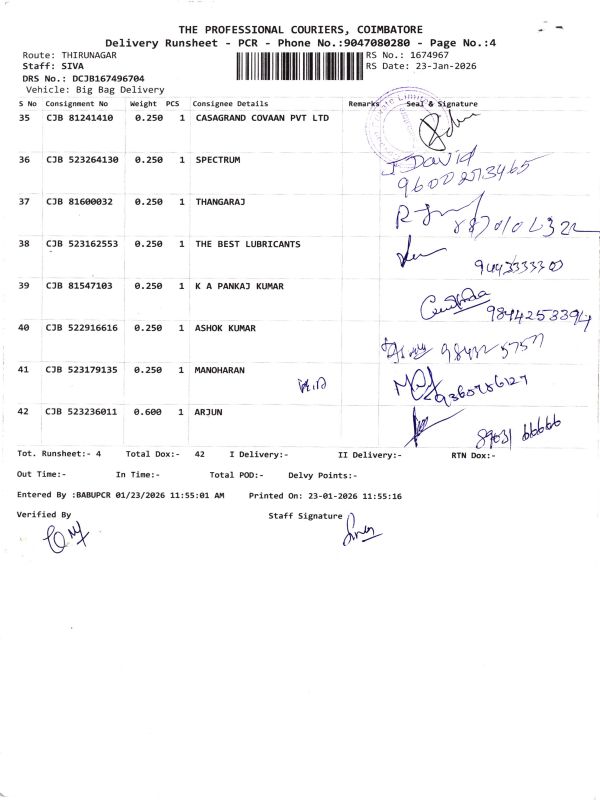 THE PROFESSIONAL COURIERS, COIMBATORE
Delivery Runsheet - PCR - Phone No.:9047080280 - Page No.:4
Route: THIRUNAGAR RS No.: 1674967
Staff: SIVA RS Date: 23-Jan-2026
DRS No.: DCJB167496704
Vehicle: Big Bag Delivery
S No Consignment No Weight PCS Consignee Details Remarks Seal & Signature
35 CJB 81241410 0.250 1 CASAGRAND COVAAN PVT LTD
36 CJB 523264130 0.250 1 SPECTRUM J David
37 CJB 81600032 0.250 1 THANGARAJ
38 CJB 523162553 0.250 1 THE BEST LUBRICANTS
9443333300
39 CJB 81547103 0.250 1 K A PANKAJ KUMAR
9844253394
40 CJB 522916616 0.250 1 ASHOK KUMAR
41 CJB 523179135 0.250 1 MANOHARAN
9360786127
42 CJB 523236011 0.600 1 ARJUN
89031 66666
Tot. Runsheet:- 4 Total Dox:- 42 I Delivery:- II Delivery:- RTN Dox:-
Out Time:- In Time:- Total POD:- Delvy Points:-
Entered By :BABUPCR 01/23/2026 11:55:01 AM Printed On: 23-01-2026 11:55:16
Verified By Staff Signature